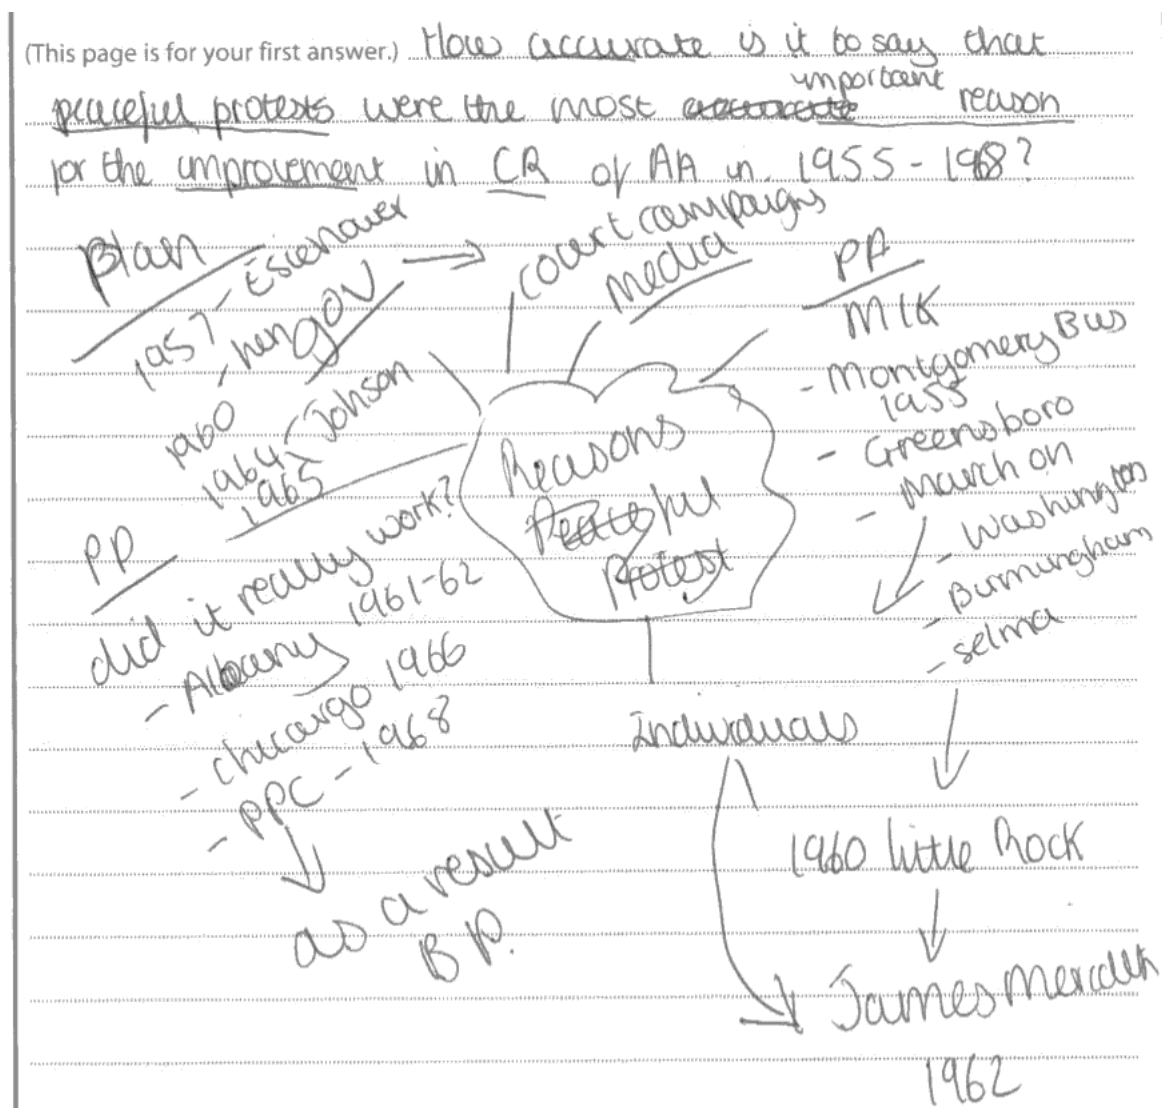 (This page is for your first answer.) How accurate is it to say that
peaceful protests were the most important reason
for the improvement in CR of AA in 1955-1968?
Plan
1957 - Esienower
→ court campaigns
media
PA
MLK
- Montgomery Bus
1955
- Greensboro
- March on
- Washington
- Burmungham
- selma
1960
1964 - Johson
1965
Reasons
Peaceful
Protest
PP
did it really work?
- Albany 1961-62
- chicargo 1966
- PPC - 1968
as a result
B P.
Individuals
1960 little Rock
James Meredith
1962